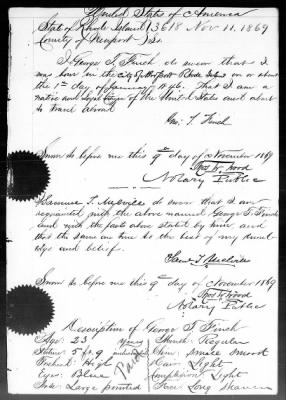 United States of America
State of Rhode Island } 3618 Nov 11. 1869
County of Newport } Ss.
I George T. Finch do swear that I
was born in the City of Newport Rhode Island on or about
the 1st day of January 1846. That I am a
native and loyal citizen of the United States and about
to travel abroad
Geo. T. Finch
Sworn to before me this 9th day of November 1869
Thos W. Wood
Notary Public
I do swear that I am
acquainted with the above named George T. Finch
and with the facts above stated by him, and
that the same are true to the best of my knowl-
edge and belief.
Sworn to before me this 9th day of November 1869
Thos W Wood
Notary Public
Description of George T Finch
Age: 23 years Mouth Regular
Stature 5 ft 9 inches Chin small
Forehead High Hair Light
Eyes: Blue Complexion Light
Nose Large pointed Face Long